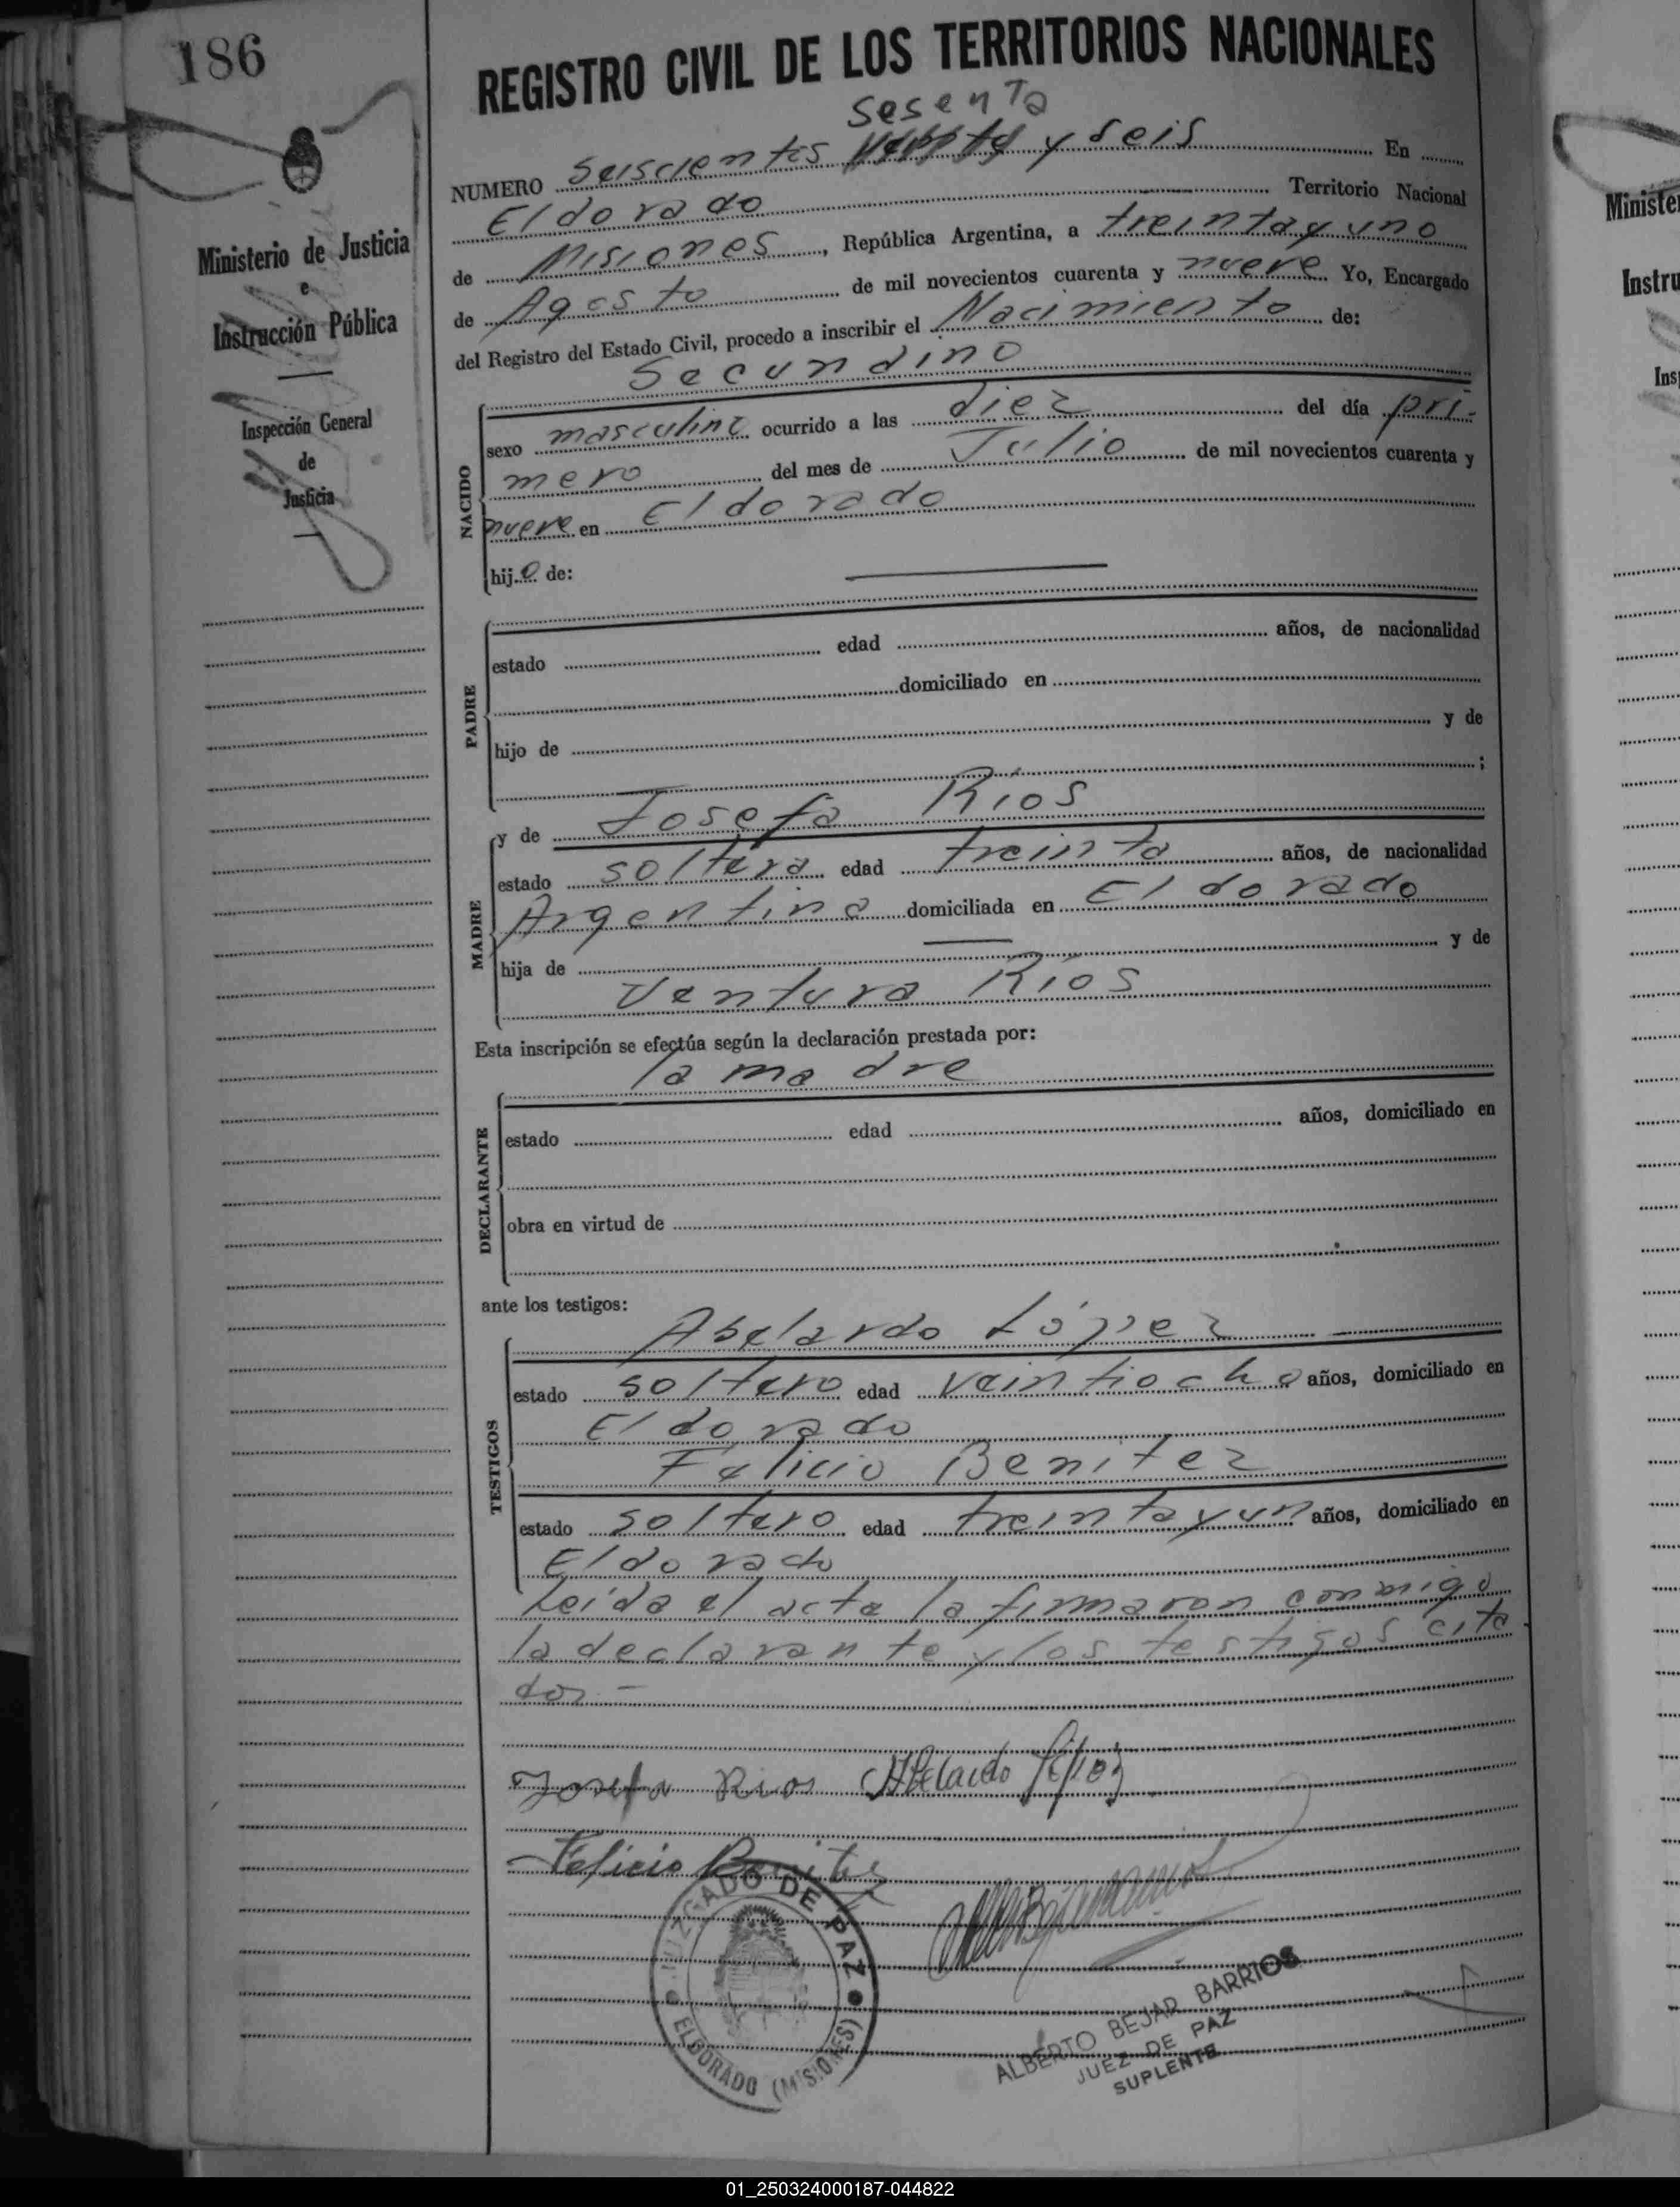 186
REGISTRO CIVIL DE LOS TERRITORIOS NACIONALES
sesenta
NUMERO Seiscientos y seis En
Eldorado Territorio Nacional
de Misiones, República Argentina, a treinta y uno
de Agosto de mil novecientos cuarenta y nueve Yo, Encargado
del Registro del Estado Civil, procedo a inscribir el Nacimiento de:
Secundino
sexo masculino ocurrido a las diez del día pri-
mero del mes de Julio de mil novecientos cuarenta y
nueve en Eldorado
hijo de:
NACIDO
estado edad años, de nacionalidad
domiciliado en
hijo de y de
;
PADRE
y de Josefa Ríos
estado soltera edad treinta años, de nacionalidad
Argentina domiciliada en Eldorado
hija de — y de
Ventura Ríos
MADRE
Esta inscripción se efectúa según la declaración prestada por:
la madre
estado edad años, domiciliado en
obra en virtud de
DECLARANTE
ante los testigos:
Abelardo López
estado soltero edad veintiocho años, domiciliado en
Eldorado
Felicio Benitez
estado soltero edad treinta y un años, domiciliado en
Eldorado
TESTIGOS
Leída el acta la firmaron conmigo
la declarante y los testigos cita
dos -
Josefa Rios Abelardo López
Felicio Benitez
JUZGADO DE PAZ
ELDORADO (MISIONES)
ALBERTO BEJAR BARRIOS
JUEZ DE PAZ
SUPLENTE
Ministerio de Justicia
e
Instrucción Pública
Inspección General
de
Justicia
Ministe
Instru
Ins
01_250324000187-044822